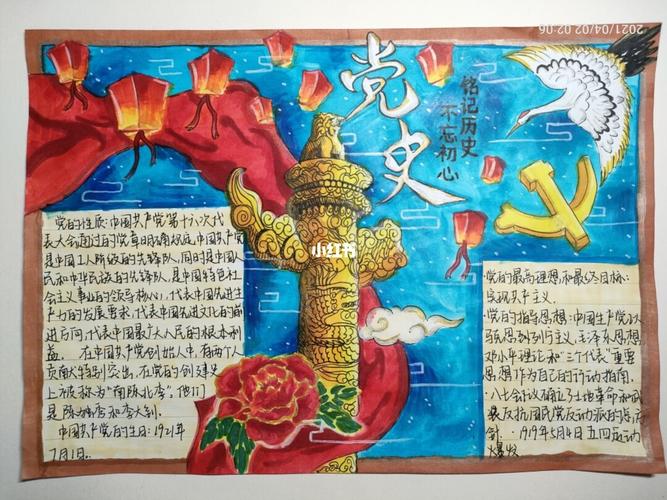 2021/04/02 02:06
党史
铭记历史
不忘初心
小红书
党的性质:中国共产党第十六次代
表大会通过的党章明确规定,中国共产党
是中国工人阶级的先锋队,同时是中国人
民和中华民族的先锋队,是中国特色社
会主义事业的领导核心,代表中国先进生
产力的发展要求,代表中国先进文化的前
进方向,代表中国最广大人民的根本利
益。 在中国共产党创始人中,有两个人
贡献特别突出,在党的创建史
上被称为“南陈北李”,他们
是陈独秀和李大钊。
中国共产党的生日:1921年
7月1日。
党的最高理想和最终目标:
实现共产主义。
·党的指导思想:中国共产党以马
克思列宁主义、毛泽东思想、
邓小平理论和“三个代表”重要
思想作为自己的行动指南。
·八七会议确定了土地革命和武
装反抗国民党反动派的总方
针。·1919年5月4日五四运动
爆发